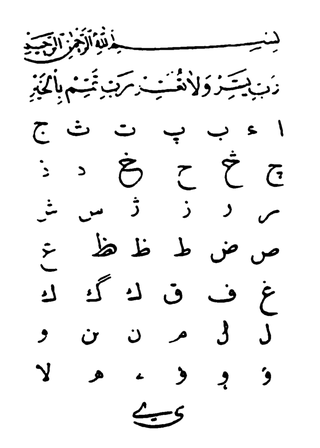 بسم الله الرحمن الرحيم
رب يسر ولا تعسر رب تمم بالخير
ا ء ب پ ت ث ج
چ ح خ د ذ
ر ر ز ژ س ش
ص ض ط ظ ظ ع
غ ف ق ك گ ك
ل م ن و
ء ه لا
ی ے